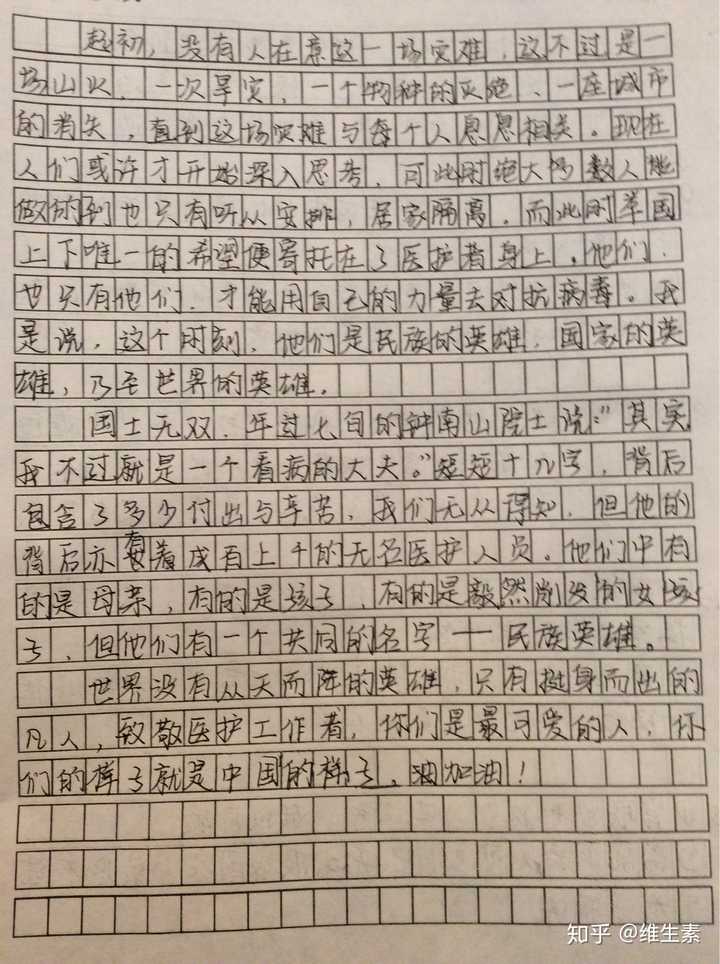 起初，没有人在意这一场灾难，这不过是一
场山火、一次旱灾、一个物种的灭绝、一座城市
的消失，直到这场灾难与每个人息息相关。现在
人们或许才开始深入思考，可此时绝大多数人能
做的到也只有听从安排，居家隔离。而此时举国
上下唯一的希望便寄托在了医护者身上。他们，
也只有他们，才能用自己的力量去对抗病毒。我
是说，这个时刻，他们是民族的英雄，国家的英
雄，乃至世界的英雄。
国士无双，年过七旬的钟南山院士说："其实
我不过就是一个看病的大夫。"短短十几字，背后
包含了多少付出与辛苦，我们无从得知，但他的
背后亦有着成百上千的无名医护人员。他们中有
的是母亲，有的是孩子，有的是毅然削发的女孩
子，但他们有一个共同的名字——民族英雄。
世界没有从天而降的英雄，只有挺身而出的
凡人，致敬医护工作者，你们是最可爱的人，你
们的样子就是中国的样子，油加油！
知乎 @维生素